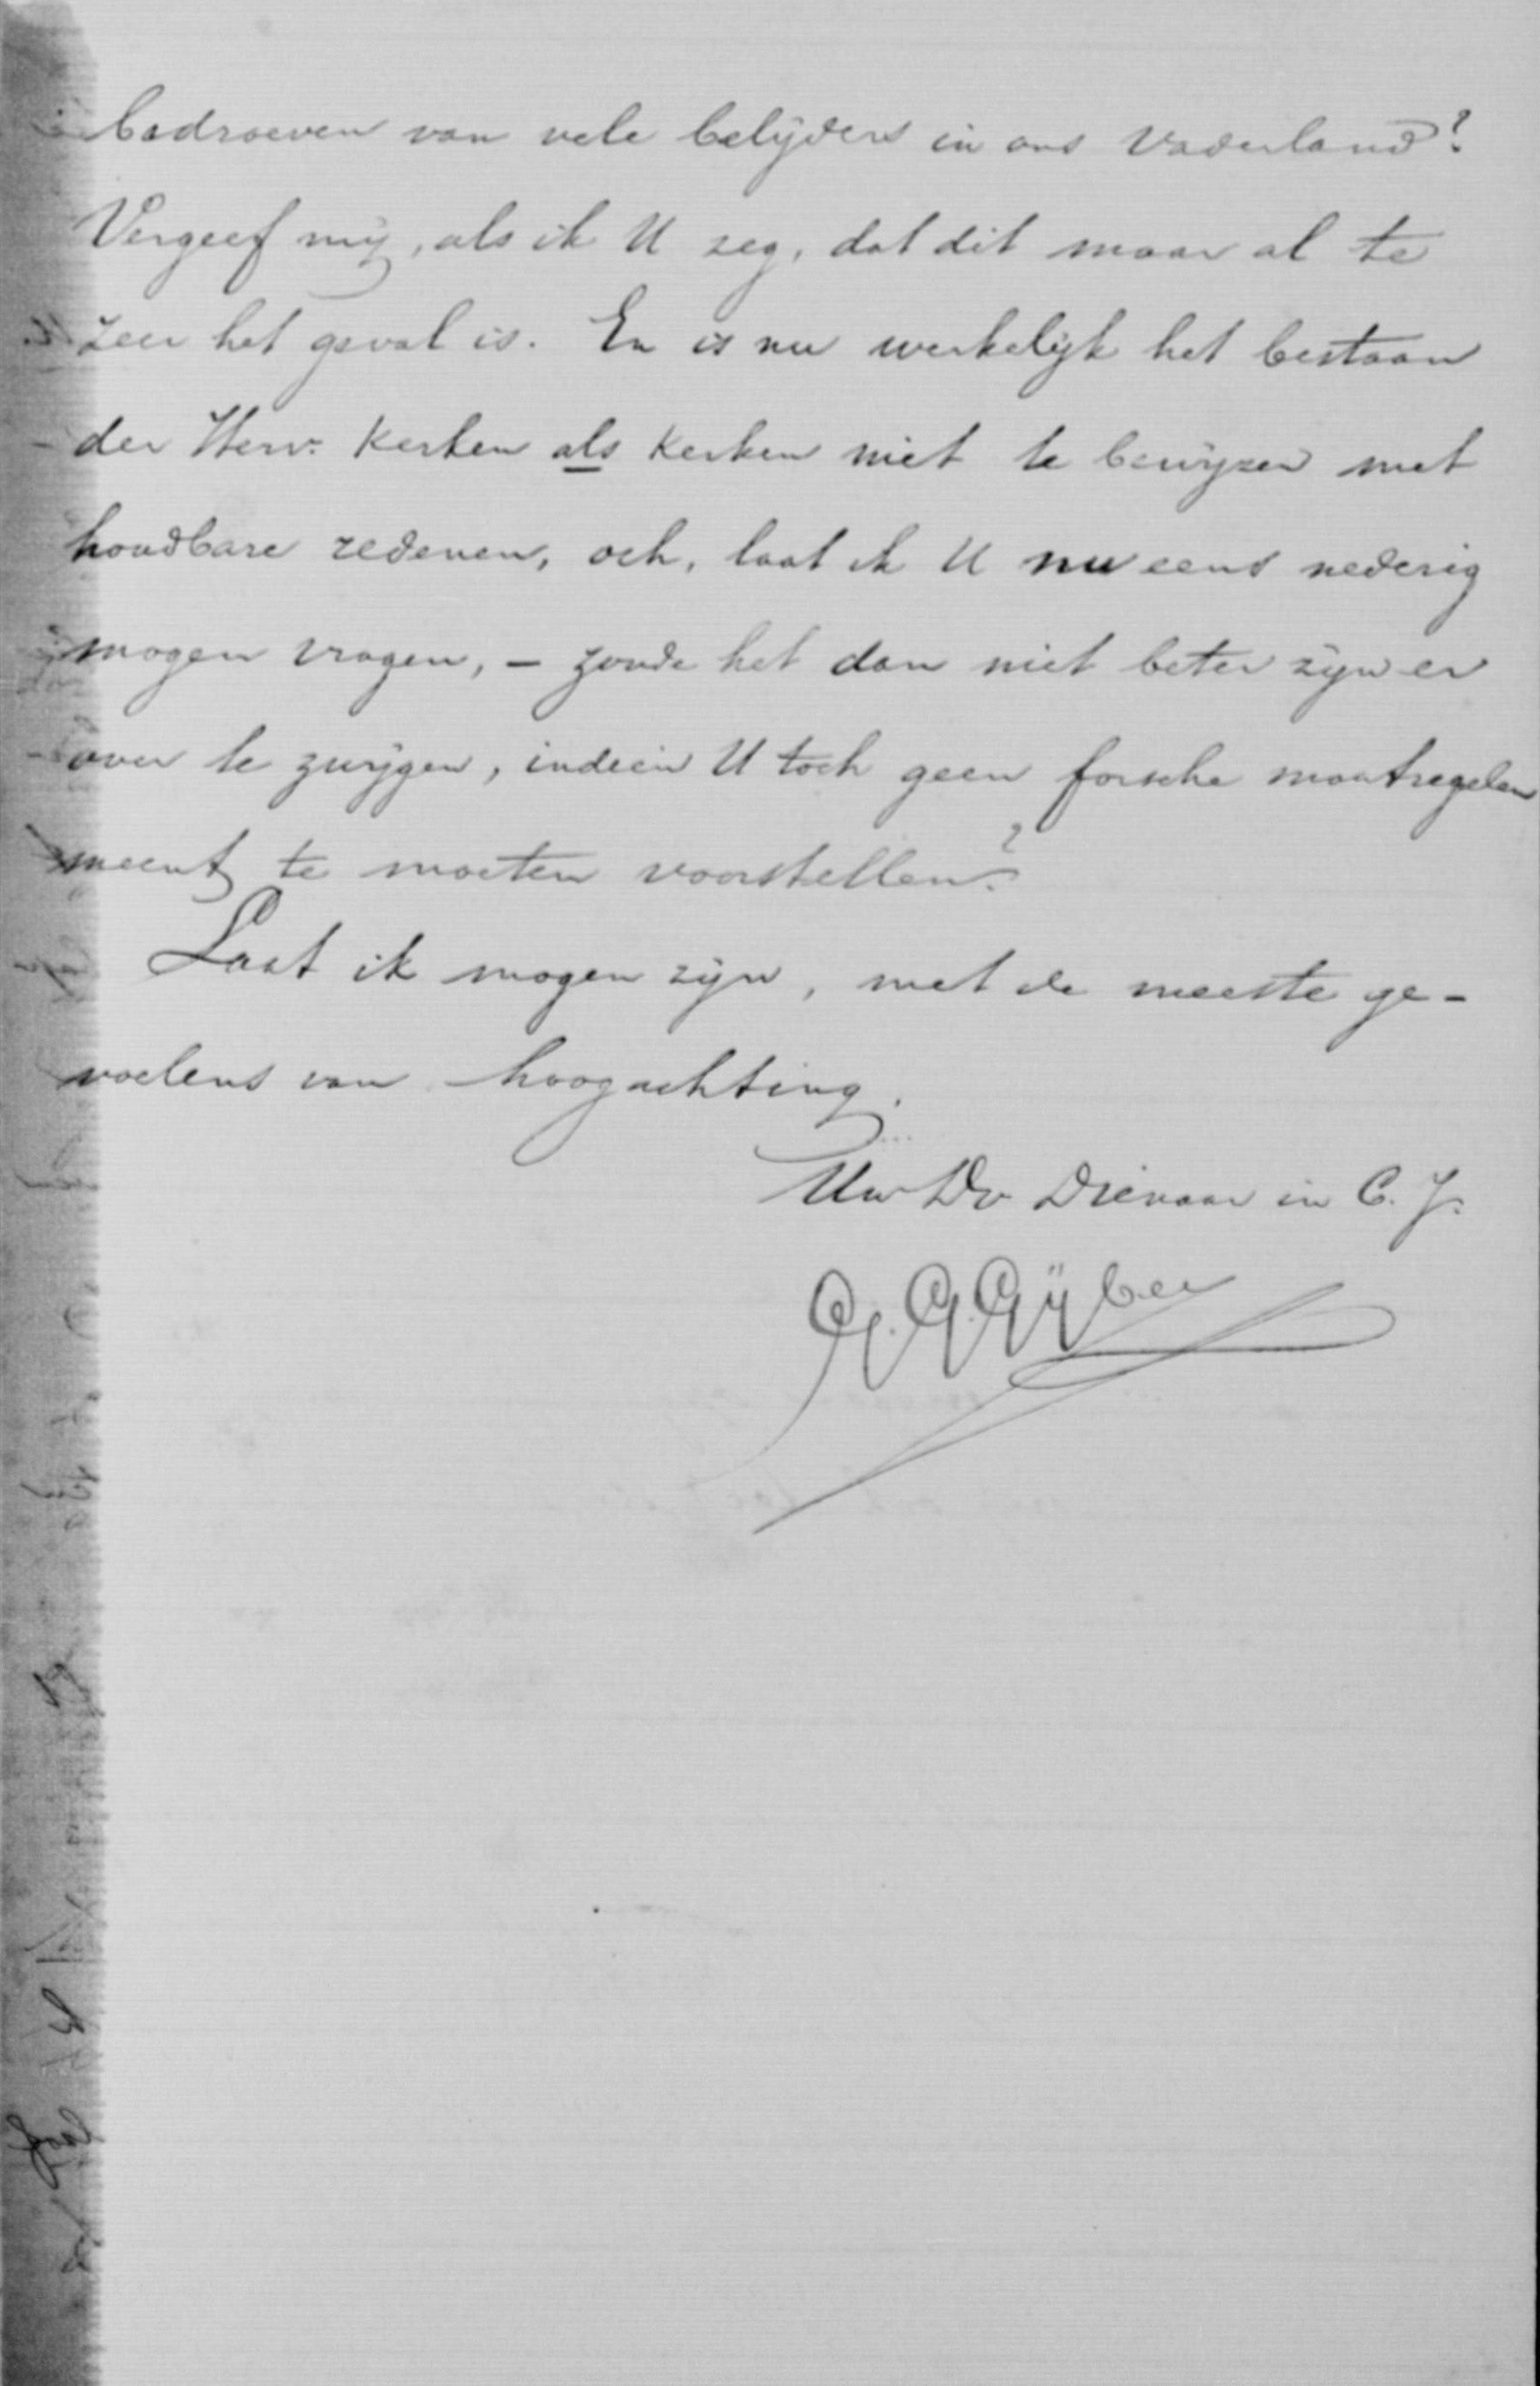 bedroeven van vele belijders in ons Vaderland?
Vergeef mij, als ik U zeg, dat dit maar al te
zeer het geval is. En is nu werkelijk het bestaan
der Herv. Kerken als Kerken niet te bewijzen met
houdbare redenen, och, laat ik U nu eens nederig
mogen vragen, – zoude het dan niet beter zijn er
over te zwijgen, indien U toch geen forsche maatregelen
meent te moeten voorstellen?
Laat ik mogen zijn, met de meeste ge-
voelens van hoogachting.
Uw Dv Dienaar in C. J.
G. G. Gijben